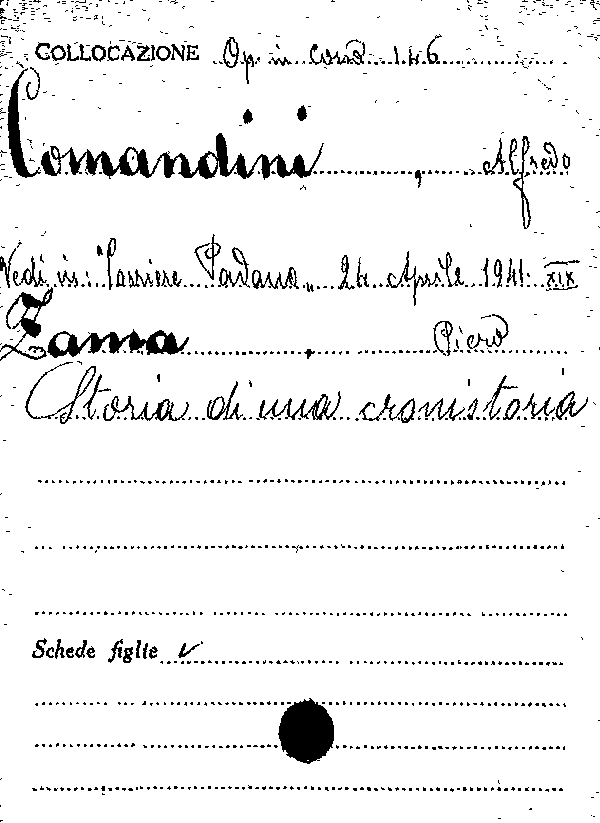 COLLOCAZIONE Op. in corso 146
Comandini, Alfredo
Vedi in: "Corriere Padano" 24 Aprile 1941 XIX
Zama, Piero
Storia di una cronistoria
Schede figlie